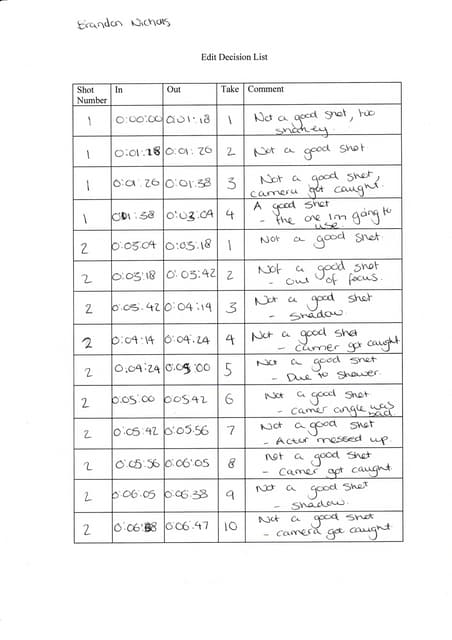 Brandon Nichols
Edit Decision List
Shot Number In Out Take Comment
1 0:00:00 0:01:18 1 Not a good shot, too
shakey.
1 0:01:18 0:01:26 2 Not a good shot
1 0:01:26 0:01:38 3 Not a good shot,
camera got caught.
1 0:01:38 0:03:04 4 A good shot
- the one Im going to
use.
2 0:03:04 0:03:18 1 Not a good shot
2 0:03:18 0:03:42 2 Not a good shot
- Out of focus.
2 0:03:42 0:04:14 3 Not a good shot
- Shadow.
2 0:04:14 0:04:24 4 Not a good shot
- camer got caught
2 0:04:24 0:05:00 5 Not a good shot
- Due to shower.
2 0:05:00 0:05:42 6 Not a good shot
- camer angle was
bad.
2 0:05:42 0:05:56 7 Not a good shot
- Actor messed up
2 0:05:56 0:06:05 8 not a good shot
- Camer got caught.
2 0:06:05 0:06:38 9 Not a good shot
- shadow.
2 0:06:38 0:06:47 10 Not a good shot
- camera got caught